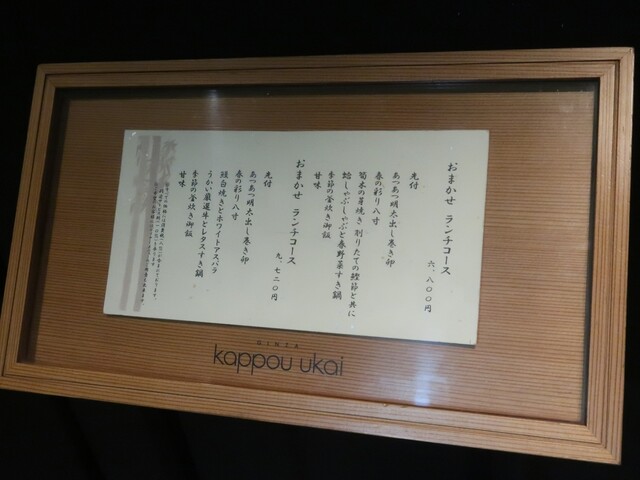 おまかせ ランチコース
六、八〇〇円
先付
あつあつ明太出し巻き卵
春の彩り八寸
筍木の芽焼き 削りたての鰹節と共に
蛤しゃぶしゃぶと春野菜すき鍋
季節の釜炊き御飯
甘味
おまかせ ランチコース
九、七二〇円
先付
あつあつ明太出し巻き卵
春の彩り八寸
鰆白焼きとホワイトアスパラ
うかい厳選牛とレタスすき鍋
季節の釜炊き御飯
甘味
GINZA
kappou ukai